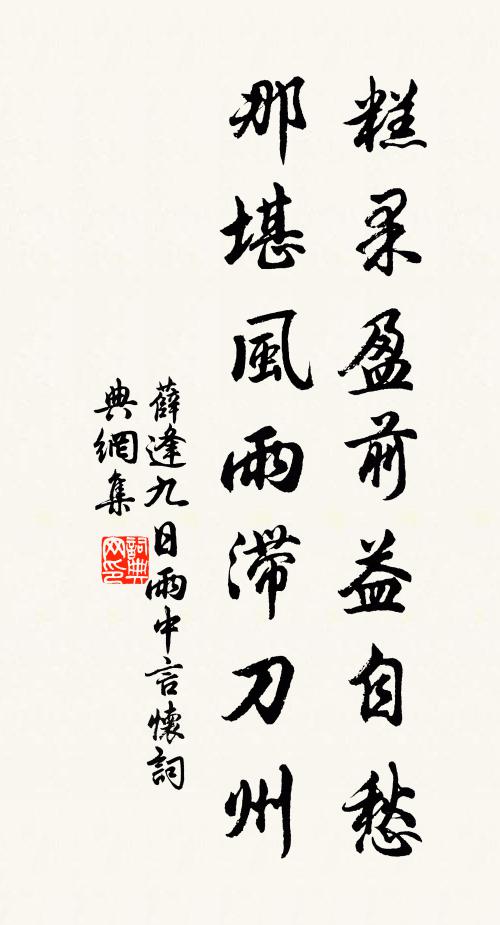 糕果盈前益自愁
那堪風雨滯刀州
薛逢九日雨中言懷詞
典網集
詞典
网印